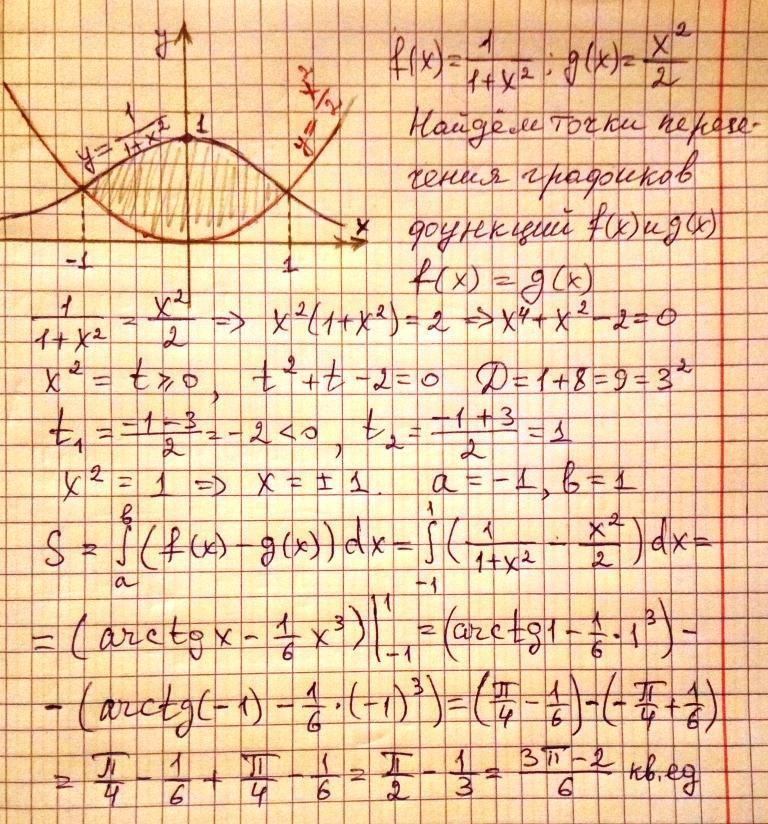 y
y = 1/(1+x²)
1
y = x²/2
x
-1
1
f(x) = 1/(1+x²) ; g(x) = x²/2
Найдём точки пересе-
чения графиков
функций f(x) и g(x)
f(x) = g(x)
1/(1+x²) = x²/2 => x²(1+x²) = 2 => x⁴+x²-2=0
x² = t ⩾ 0, t²+t-2=0 D=1+8=9=3²
t₁ = (-1-3)/2 = -2 < 0, t₂ = (-1+3)/2 = 1
x² = 1 => x = ±1. a = -1, в = 1
S = ∫ₐᵇ (f(x) - g(x)) dx = ∫₋₁¹ (1/(1+x²) - x²/2) dx =
= (arctg x - 1/6 x³)|₋₁¹ = (arctg1 - 1/6 · 1³) -
- (arctg(-1) - 1/6 · (-1)³) = (π/4 - 1/6) - (-π/4 + 1/6)
= π/4 - 1/6 + π/4 - 1/6 = π/2 - 1/3 = (3π-2)/6 кв.ед